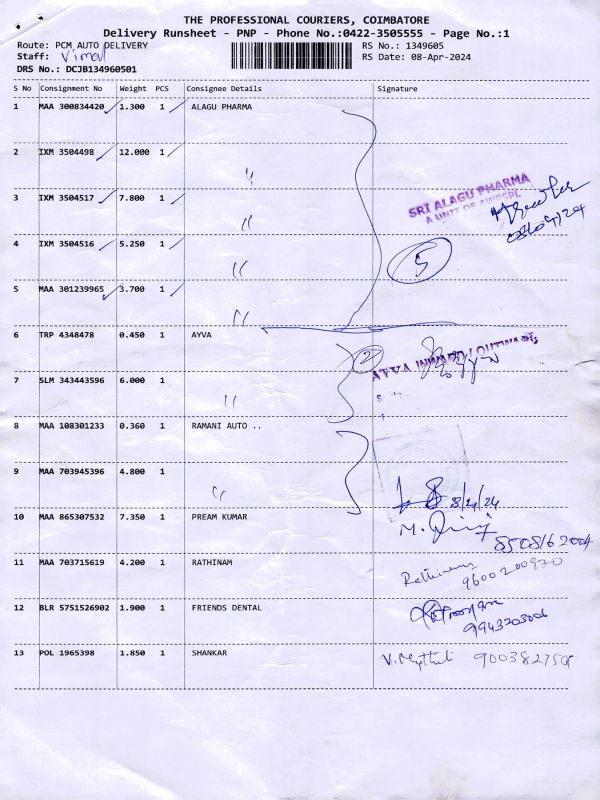 THE PROFESSIONAL COURIERS, COIMBATORE
Delivery Runsheet - PNP - Phone No.:0422-3505555 - Page No.:1
Route: PCM AUTO DELIVERY RS No.: 1349605
Staff: Vimal RS Date: 08-Apr-2024
DRS No.: DCJB134960501
S No Consignment No Weight PCS Consignee Details Signature
1 MAA 300834420 1.300 1 ALAGU PHARMA
2 IXM 3504498 12.000 1 "
3 IXM 3504517 7.800 1 "
SRI ALAGU PHARMA
A UNIT OF
4 IXM 3504516 5.250 1 "
5
5 MAA 301239965 3.700 1 "
6 TRP 4348478 0.450 1 AYVA
2
AYVA INWARD / OUTWARD
7 SLM 343443596 6.000 1 "
8 MAA 108301233 0.360 1 RAMANI AUTO ..
9 MAA 703945396 4.800 1 "
8/4/24
10 MAA 865307532 7.350 1 PREAM KUMAR
11 MAA 703715619 4.200 1 RATHINAM
Rathinam
9600200970
12 BLR 5751526902 1.900 1 FRIENDS DENTAL
9943203006
13 POL 1965398 1.850 1 SHANKAR V. Mythili